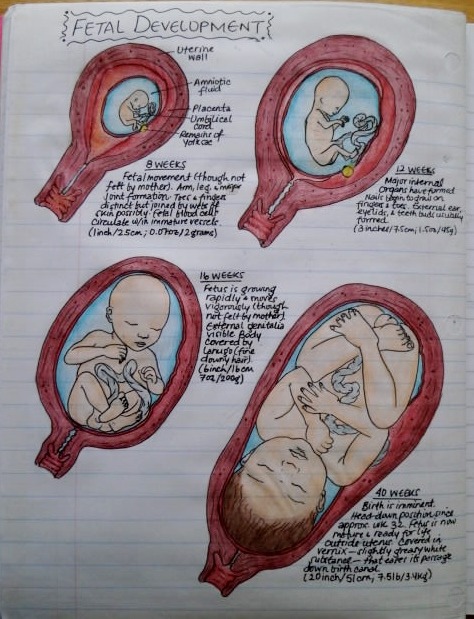 FETAL DEVELOPMENT
Uterine
wall
Amniotic
fluid
Placenta
Umbilical
cord
Remains of
Yolk sac
8 WEEKS
Fetal movement (though not
felt by mother). Arm, leg, & major
Joint formation. Toes & fingers
distinct but joined by webs of
skin possibly. Fetal blood cells
circulate w/in immature vessels.
(1inch/2.5cm; 0.07oz/2grams)
12 WEEKS
Major internal
Organs have formed
Nails begin to grow on
fingers & toes. External ear,
eyelids, & teeth buds usually
formed.
(3 inches/7.5cm, 1.5oz/45g)
16 WEEKS
Fetus is growing
rapidly & moves
vigorously (though
not felt by mother).
External genitalia
visible Body
covered by
Lanugo (fine
downy hair)
(6inch/16cm
7oz/200g)
40 WEEKS
Birth is imminent.
Head-down position since
approx. wk 32. Fetus is now
mature & ready for life
outside uterus. Covered in
vernix - slightly greasy white
substance - that eases its passage
down birth canal.
(20inch/51cm; 7.5lb/3.4kg)